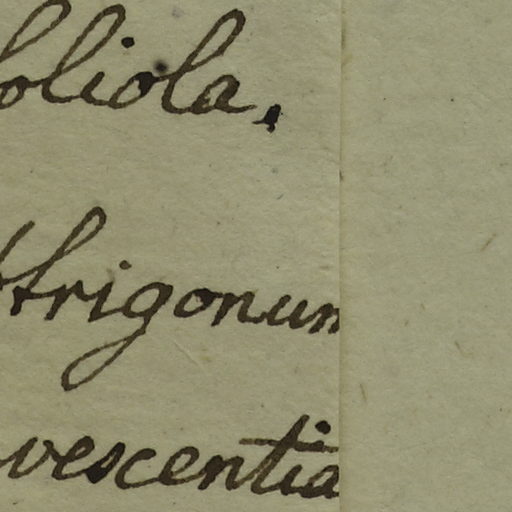 foliola.
trigonum
vescentia